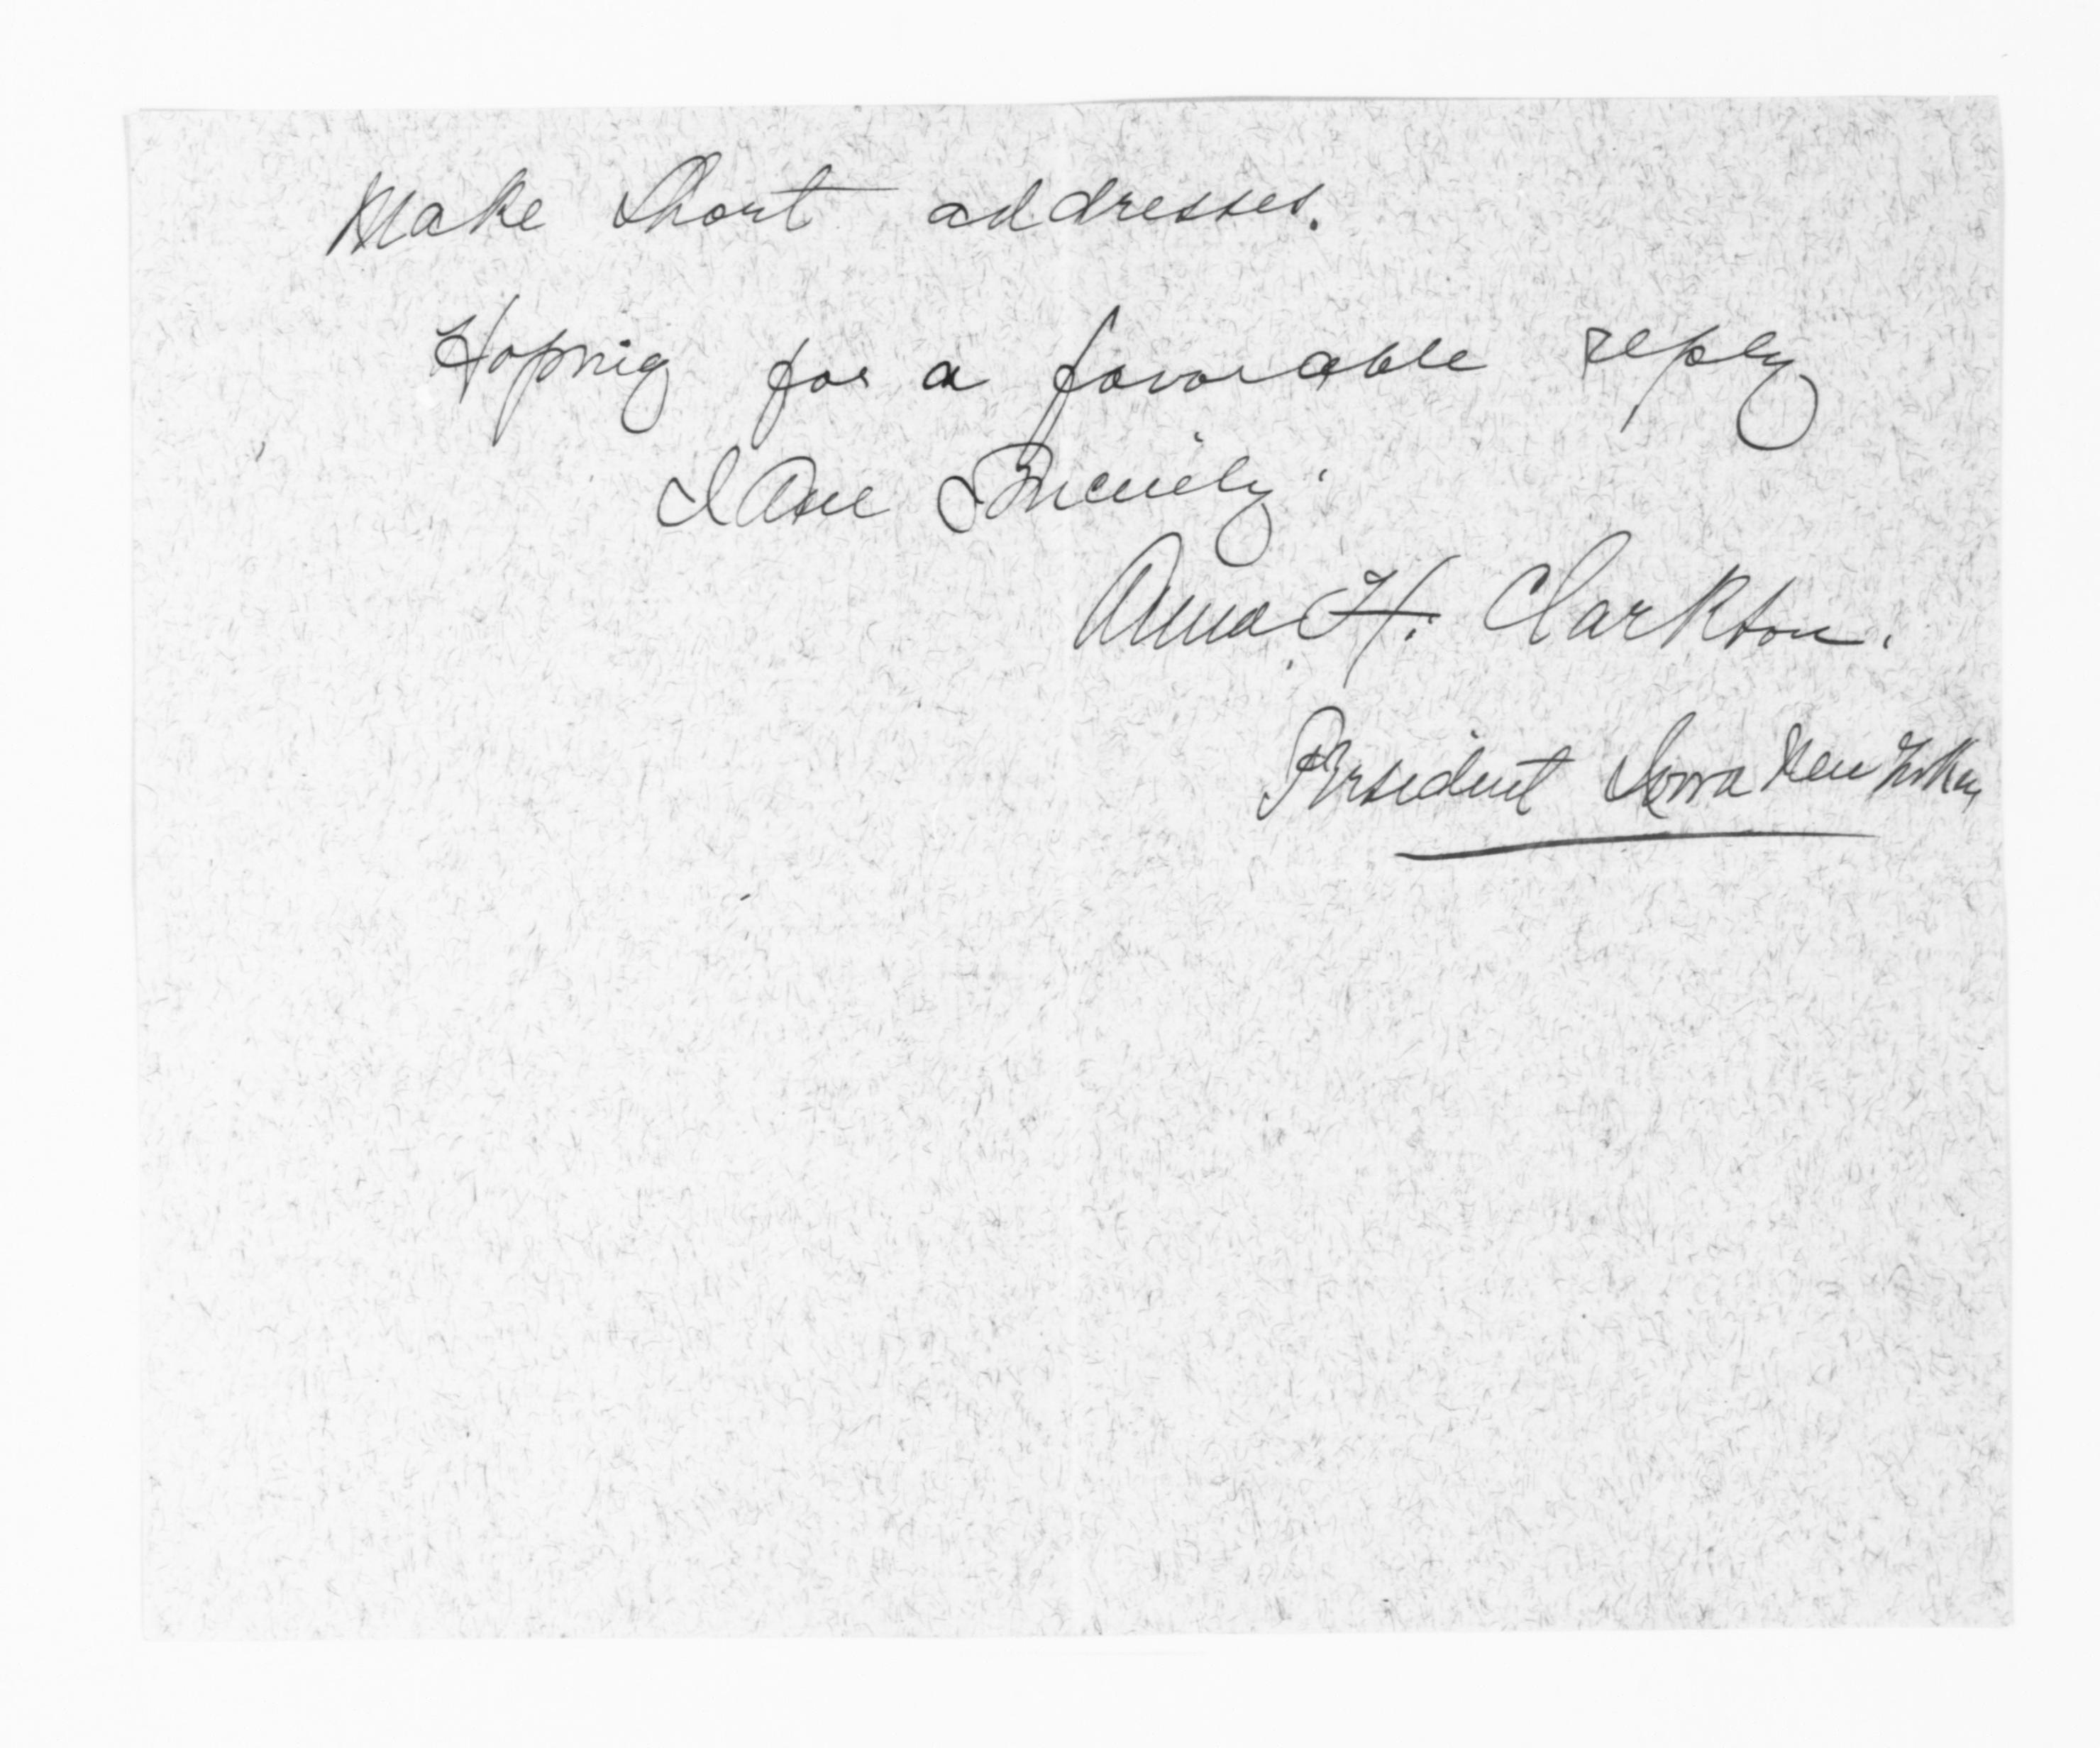 Make Short addresses.
Hoping for a favorable reply
I am Sincerely.
Anna H. Clarkson.
President Iowa New Yorkers